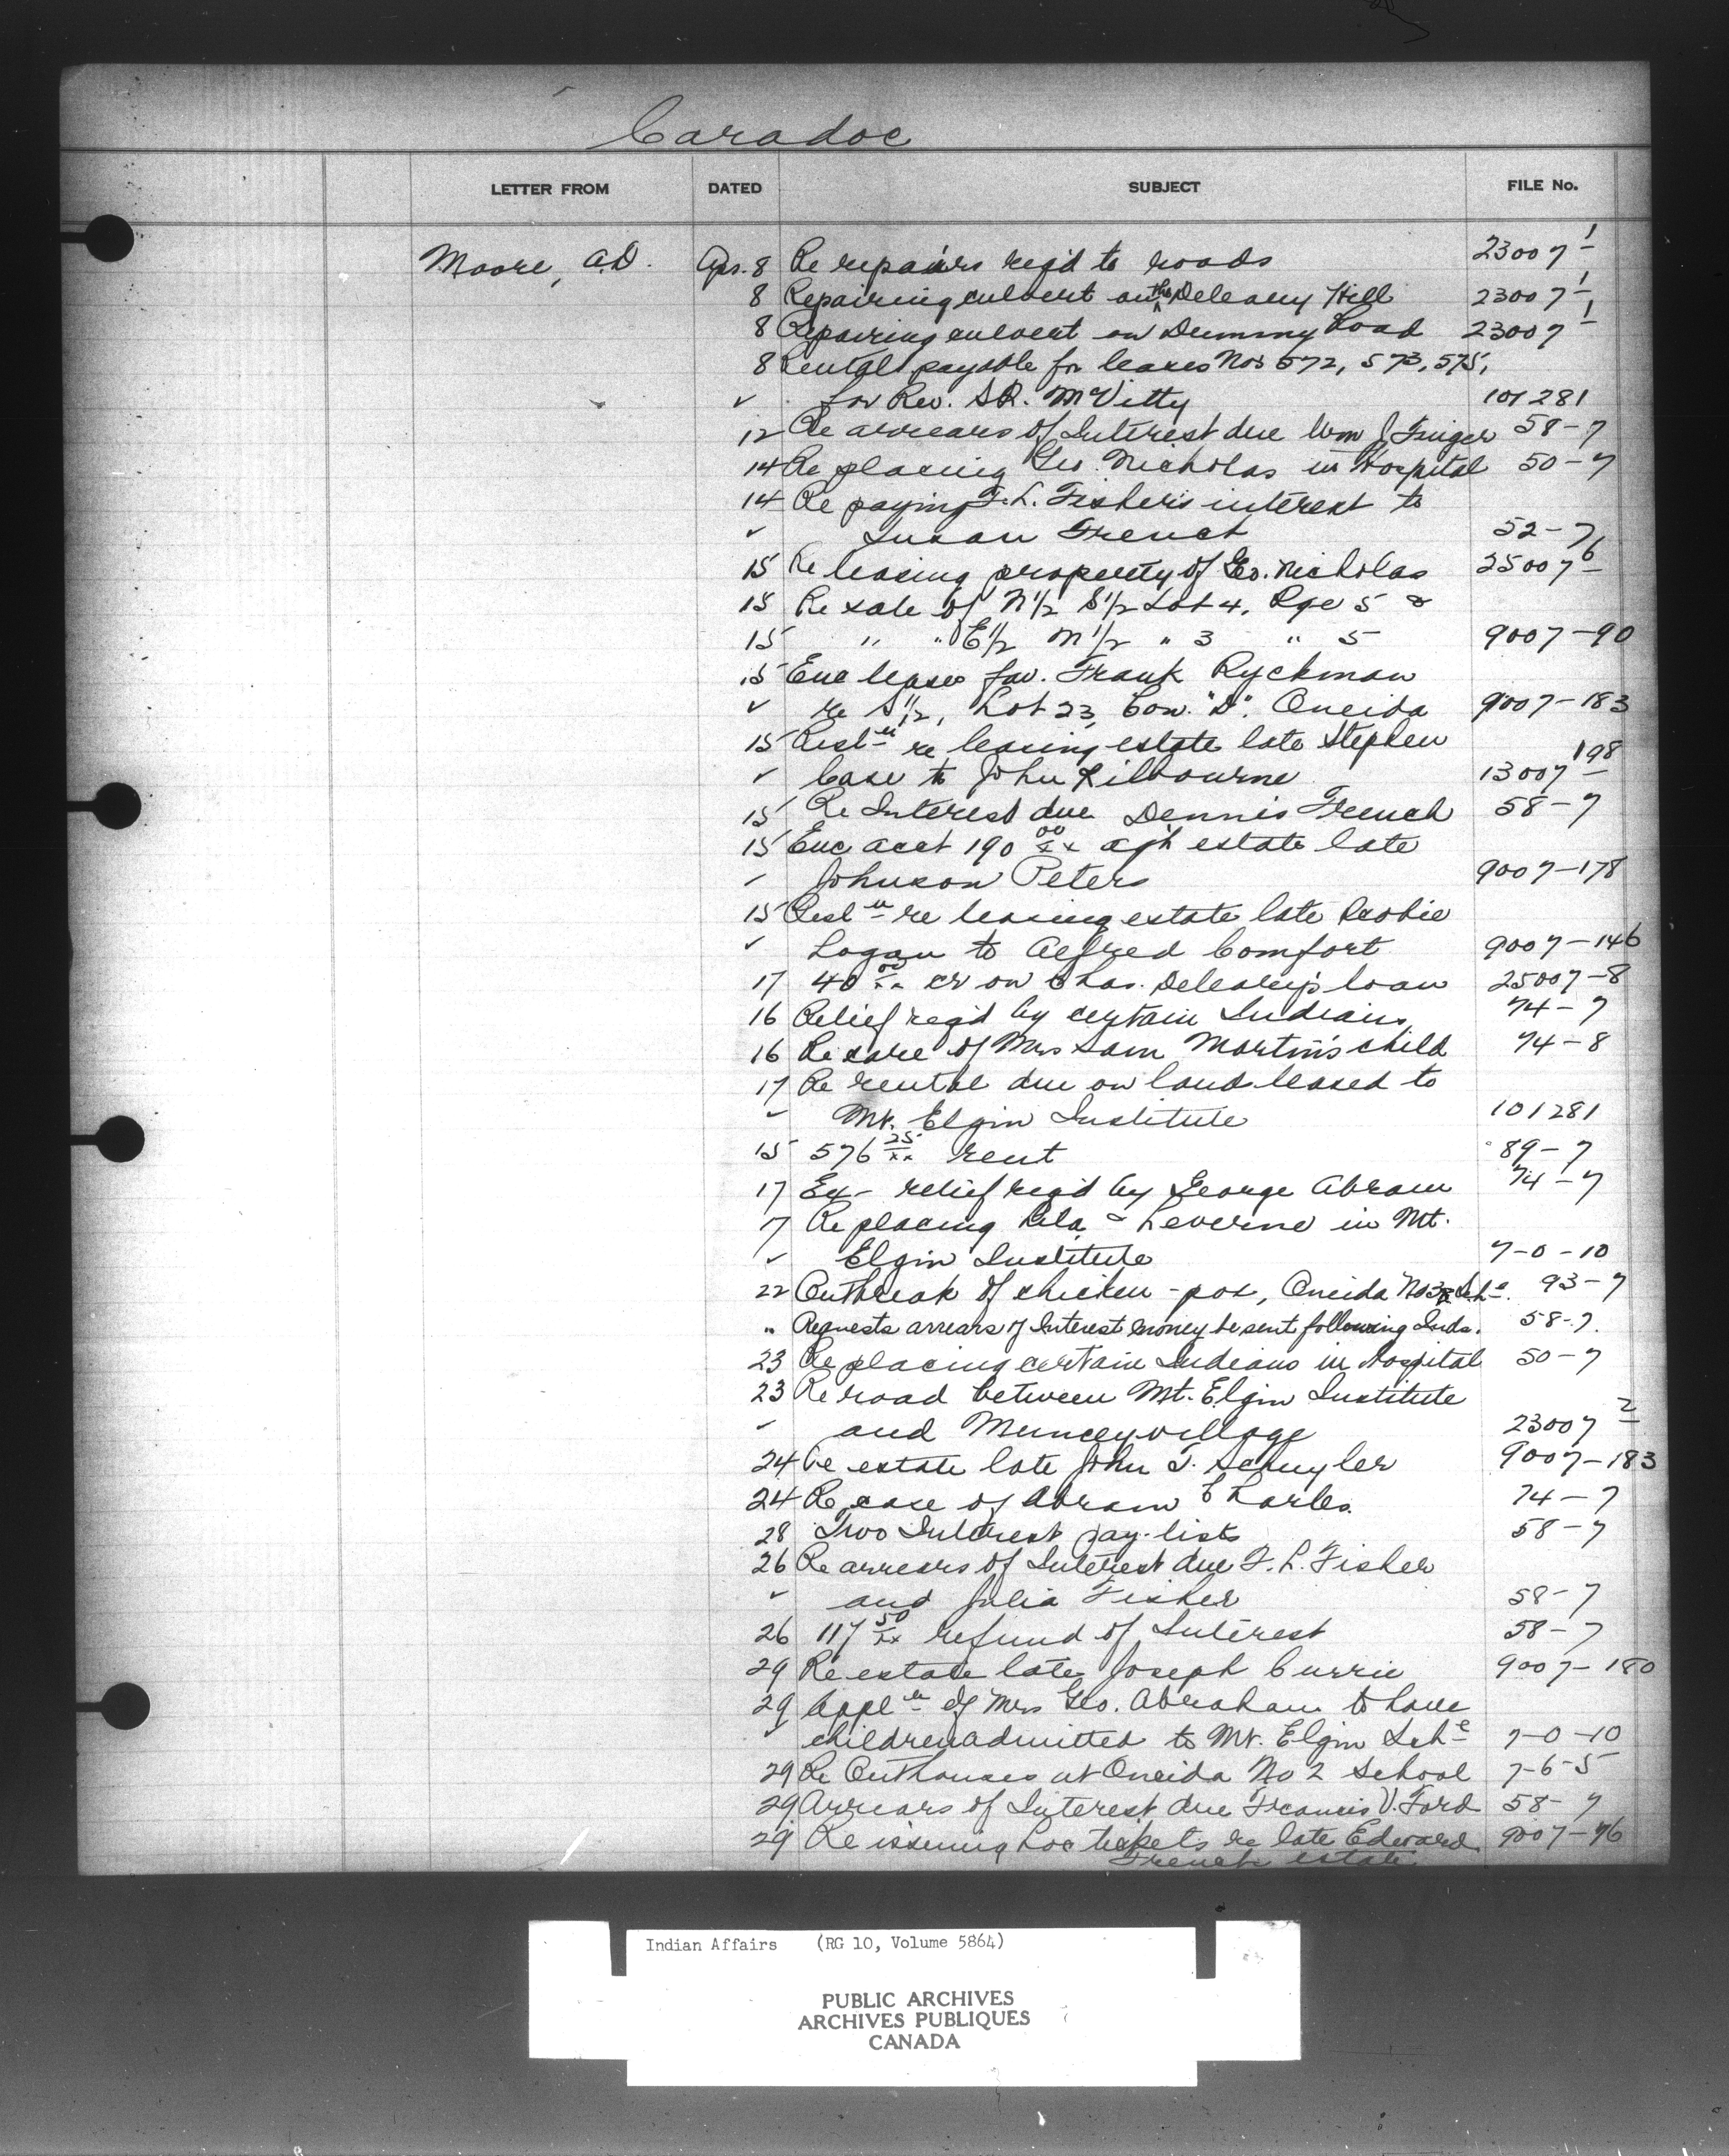 Caradoc
LETTER FROM DATED SUBJECT FILE No.
Moore, A.D. Apr. 8 Re repairs req'd to roads 23007-1
8 Repairing culvert on the Deleary Hill 23007-1
8 Repairing culvert on Dummy Road 23007-1
8 Rental payable for leases Nos 572, 573, 575,
✓ for Rev. S.R. McVitty 101281
12 Re arrears of Interest due Wm J 58-7
14 Re placing Geo. Nicholas in Hospital 50-7
14 Re paying F.L. Fisher's interest to
✓ Susan French 52-7
15 Re leasing property of Geo. Nicholas 25007-6
15 Re sale of N½ S½ Lot 4, Rge 5 &
15 " " E½ N½ " 3 " 5 9007-90
15 Enc lease fav. Frank Ryckman
✓ re S½, Lot 23, Con. "D". Oneida 9007-183
15 Resl n re leasing estate late Stephen
✓ Case to John Kilbourne 13007-198
15 Re Interest due Dennis French 58-7
15 Enc acct 190 00/xx agst estate late
✓ Johnson Peters 9007-178
15 Resl n re leasing estate late
✓ Logan to Alfred Comfort 9007-146
17 40 00/xx cr on Chas. Deleary's loan 25007-8
16 Relief req'd by certain Indians 74-7
16 Re care of Mrs Sam Martin's child 74-8
17 Re rental due on land leased to
✓ Mt. Elgin Institute 101281
15 576 25/xx rent 89-7
17 Ex- relief req'd by George Abram 74-7
7 Re placing & Leverne in Mt.
✓ Elgin Institute 7-0-10
22 Outbreak of chicken-pox, Oneida No 3 Sch. 93-7
" Requests arrears of Interest money be sent following Inds. 58-7.
23 Re placing certain Indians in Hospital 50-7
23 Re road between Mt. Elgin Institute
✓ and Muncey village 23007-2
24 Re estate late John T. Schuyler 9007-183
24 Re case of Abram Charles. 74-7
28 Two Interest pay-lists 58-7
26 Re arrears of Interest due F. L. Fisher
✓ and Julia Fisher 58-7
26 117 50/xx refund of Interest 58-7
29 Re estate late Joseph Currie 9007-180
29 Appl n of Mrs Geo. Abraham to have
✓ children admitted to Mt. Elgin Sch l 7-0-10
29 Re Outhouses at Oneida No 2 School 7-6-5
29 Arrears of Interest due Francis V. Ford 58-7
29 Re issuing Loc tickets re late Edward 9007-76
French estate
Indian Affairs (RG 10, Volume 5864)
PUBLIC ARCHIVES
ARCHIVES PUBLIQUES
CANADA